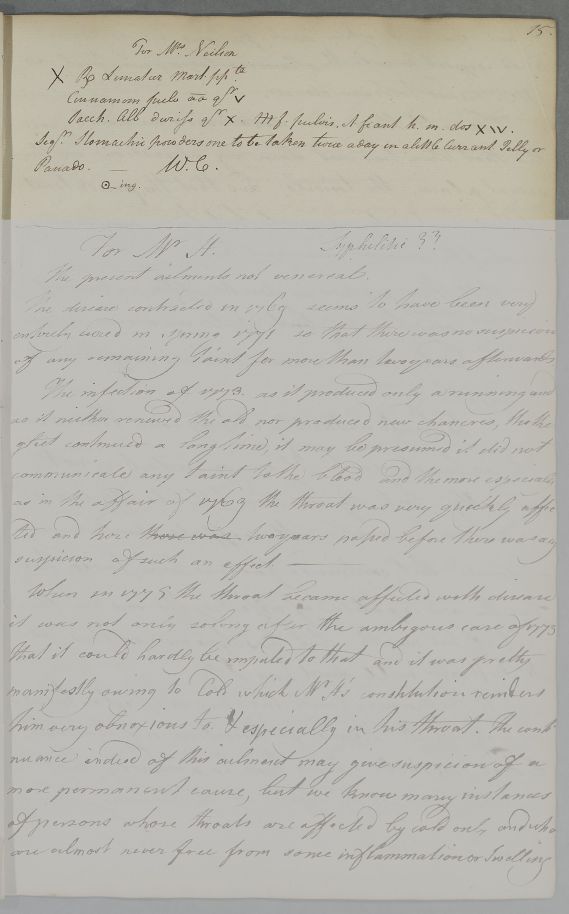 15.
For Mrs. Neilson
X ℞ Limatur Mart. ppte
Cinnamom pulv āā gr v
Sacch. Alb. duriss gr x. M f. pulvis. et fiant h. m. dos xiv.
Sign. Stomachic powders one to be taken twice a day in a little Currant Jelly or
Panado. — W. C.
ing.
For Mr. H. Syphilitic ??
The present ailments not venereal.
The disease contracted in 1769 seems to have been very
entirely cured in spring 1771 so that there was no suspicion
of any remaining taint for more than two years afterwards
The infection of 1773. as it produced only a running and
as it neither renewed the old nor produced new chancres, tho the
gleet continued a long time, it may be presumed it did not
communicate any taint to the blood and the more especially
as in the affair of 1769 the throat was very quickly affec
ted and here those was two years passed before there was any
suspicion of such an effect —
When in 1775 the throat became affected with disease
it was not only so long after the ambigous case of 1773
that it could hardly be imputed to that and it was pretty
manifestly owing to Cold which Mr. H's constitution renders
him very obnoxious to. & especially in his throat. The conti
nuance indeed of this ailment may give suspicion of a
more permanent cause, but we know many instances
of persons whose throats are affected by cold only and who
are almost never free from some inflammation or Swelling